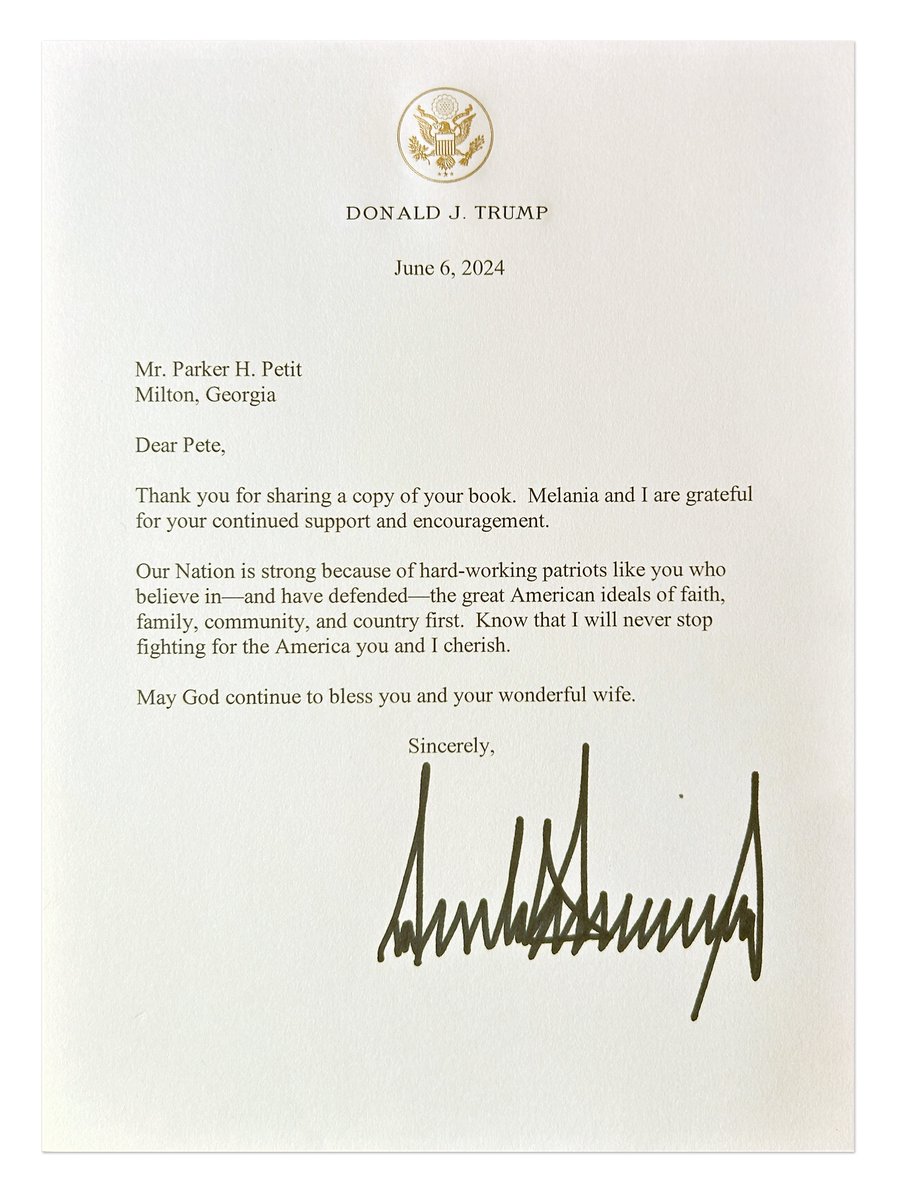 DONALD J. TRUMP
June 6, 2024
Mr. Parker H. Petit
Milton, Georgia
Dear Pete,
Thank you for sharing a copy of your book.  Melania and I are grateful
for your continued support and encouragement.
Our Nation is strong because of hard-working patriots like you who
believe in—and have defended—the great American ideals of faith,
family, community, and country first.  Know that I will never stop
fighting for the America you and I cherish.
May God continue to bless you and your wonderful wife.
Sincerely,